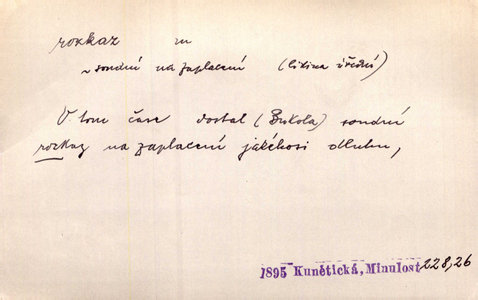 rozkaz m
~ soudní na zaplacení (listina úřední)
V tom čase dostal (Brkola) soudní
rozkaz na zaplacení jakéhosi dluhu,
1895 Kunětická, Minulost 228,26